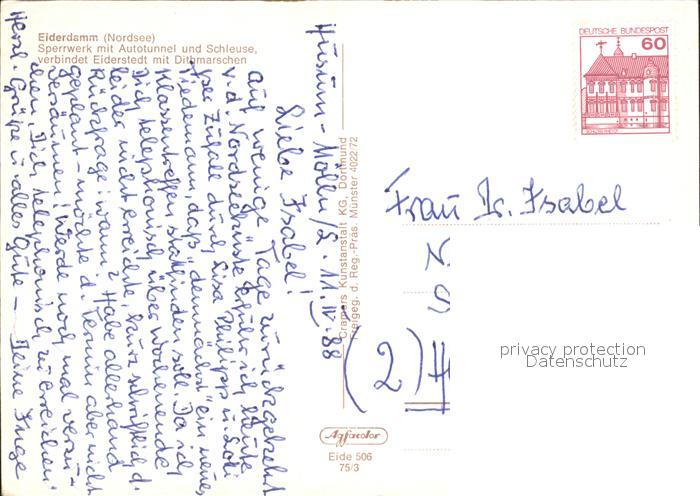 Eiderdamm (Nordsee)
Sperrwerk mit Autotunnel und Schleuse,
verbindet Eiderstedt mit Dithmarschen
Husum - Mölln/L. 11.IV.88
Liebe Isabel!
Auf wenige Tage zurückgekehrt
v. d. Nordseeküste erfuhr ich heute
per Zufall durch Lisa Philipp u. Loki
Tiedemann, daß "demnächst" ein neues
Klassentreffen stattfinden soll. Da ich
Dich telephonisch über Wochenende
leider nicht erreichte, kurz schriftlich d.
Rückfrage: wann? Habe allerhand
geplant - möchte d. Termin aber nicht
versäumen! Werde noch mal versu-
chen, Dich telephonisch zu erreichen.
Herzl. Grüße u. alles Gute - Deine Inge
Cramers Kunstanstalt KG., Dortmund
Freigeg. d. Reg.-Präs. Münster 4022/72
DEUTSCHE BUNDESPOST
60
Frau Dr. Isabel
(2)
privacy protection
Datenschutz
Agfacolor
Eide 506
75/3